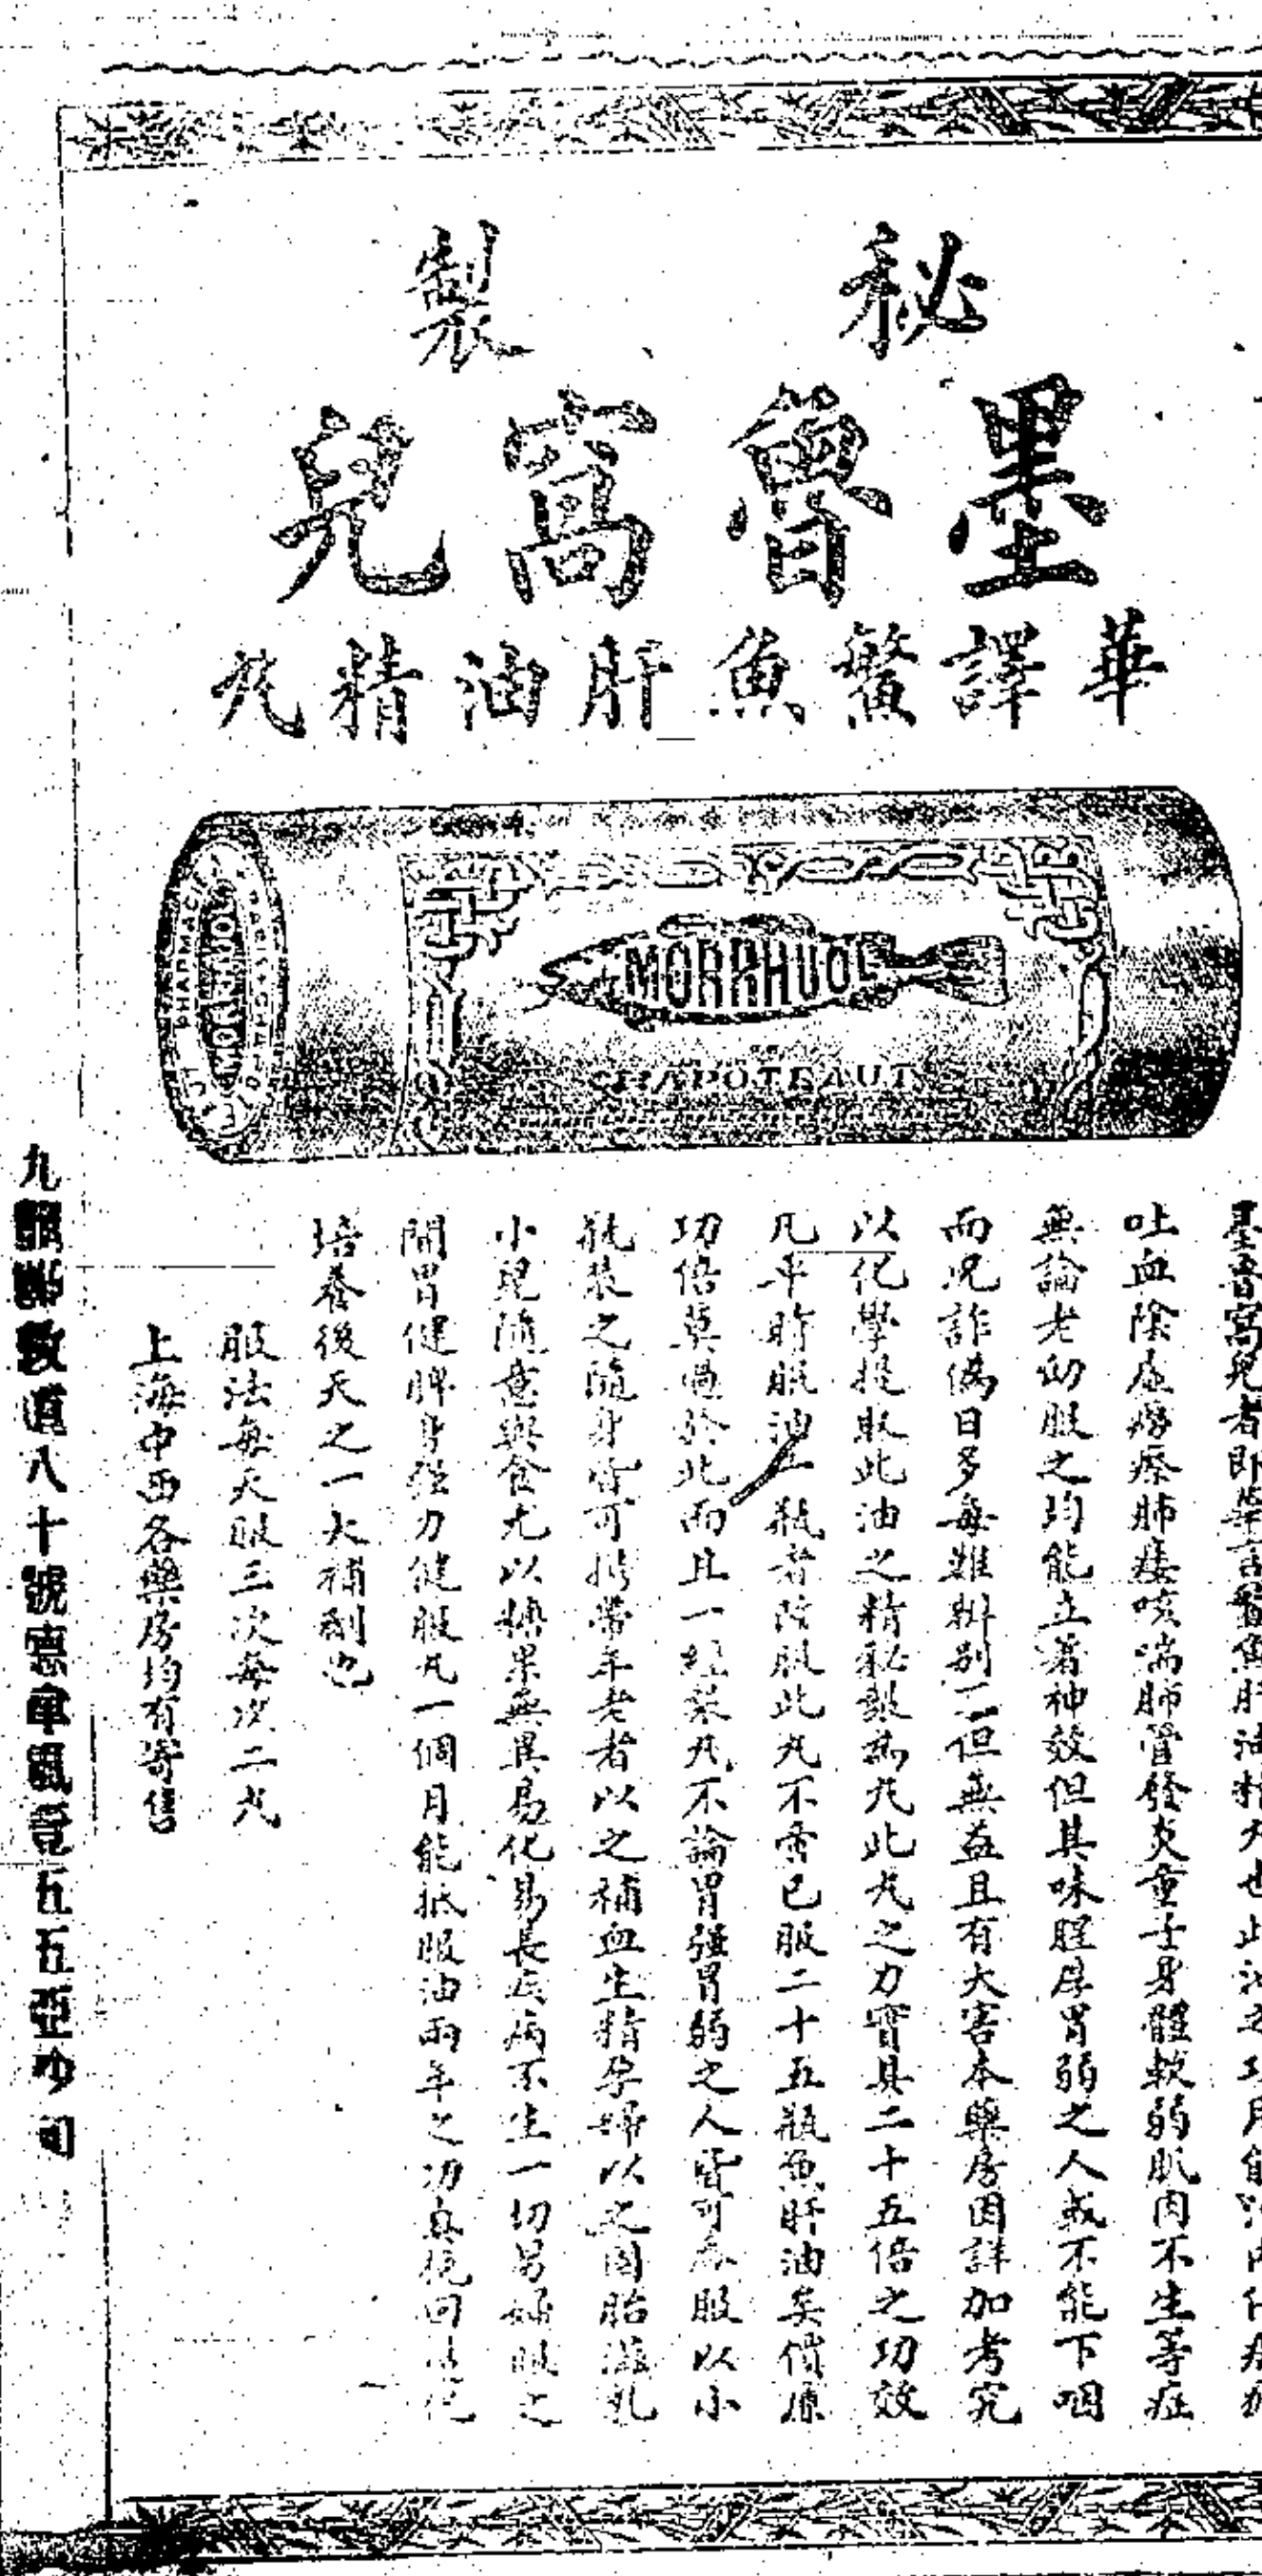 秘製
墨魯窩兒
華譯鱉魚肝油精丸
MORRHUOL
CHAPOTEAUT
PHARMAC
MORRHUOL
墨魯窩兒者即華言鱉魚肝油精丸也此油之功用能治內傷
吐血陰虛癆瘵肺痿咳喘肺管發炎童子身體軟弱肌肉不生等症
無論老幼服之均能立著神效但其味腥厚胃弱之人或不能下咽
而況詐偽日多每難辦別不但無益且有大害本藥房因詳加考究
以化學提取此油之精秘製為丸此丸之力實具二十五倍之功效
凡平時服油一瓶者改服此丸不啻已服二十五瓶魚肝油矣價廉
功倍莫過於此而且一經菜丸不論胃強胃弱之人皆可吞服以小
瓶裝之隨身皆可攜帶年老者以之補血生精孕婦以之固胎滋乳
小兒隨意與食尤以糖果無異易化易長疾病不生一切男婦服之
開胃健脾身強力健服丸一個月能抵服油兩年之功真挽回
培養後天之一大補劑也
服法每天服三次每次二丸
上海中西各藥房均有寄售
九 教道八十號 五五亞 司